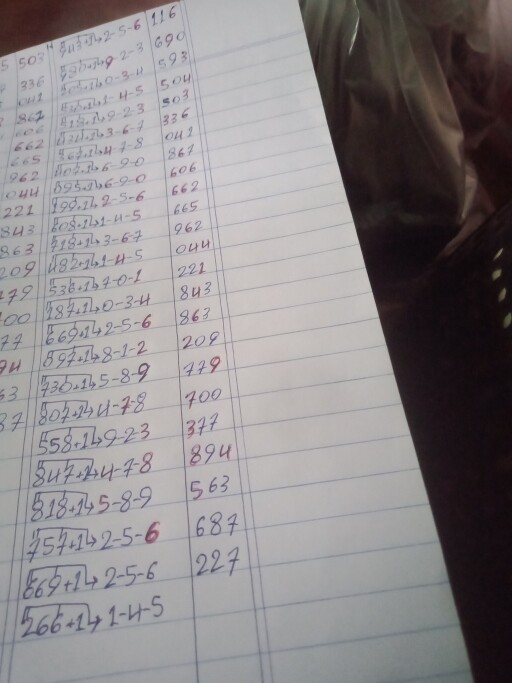 5 503 743+1→2-5-6 116
336 730+1→9-2-3 690
041 0-3-4 593
862 1-4-5 504
606 9-2-3 503
662 3-6-7 336
665 4-7-8 041
962 6-9-0 867
044 6-9-0 606
221 2-5-6 662
843 608+1→1-4-5 665
863 3-6-7 962
209 482+1→1-4-5 044
179 536+1→7-0-1 221
00 187+1→0-3-4 843
77 669+1→2-5-6 863
94 897+1→8-1-2 209
63 730+1→5-8-9 779
87 807+1→4-7-8 700
558+1→9-2-3 377
847+1→4-7-8 894
818+1→5-8-9 563
757+1→2-5-6 687
669+1→2-5-6 227
266+1→1-4-5